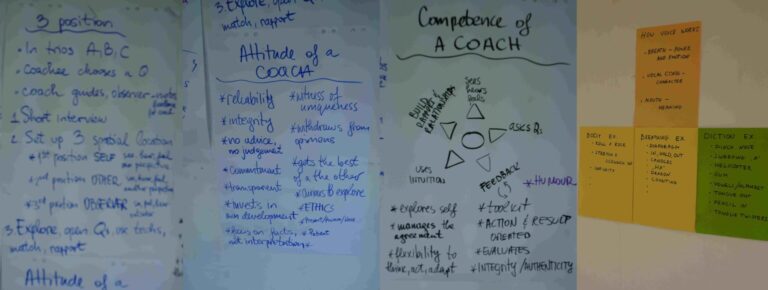 3 position
• In trios A, B, C
• Coachee chooses a Q
• Coach guides, observer - notes
feedback
for coach
1. Short interview
2. Set up 3 spatial location
* 1st position SELF see, hear, feel
own position
* 2nd position OTHER
another perspective
* 3rd position OBSERVER
3. Explore, open Qs, use techs,
match, rapport
Attitude of a
3. Explore, open Qs
match, rapport
Attitude of a
COACH
* reliability
* integrity
* no advice,
no judgement
* Commitment
* transparent
* Invests in
own development
* focus on facts,
not interpretations
* witness of
uniqueness
* withdraws from
opinions
* gets the best
of a the other
* Curious & explore
* ETHICS
Competence of
A COACH
BUILD
RAPPORT &
RELATIONSHIPS
sees
hears
feels
asks Qs
USES
INTUITION
FEEDBACK
* HUMOUR
* explores self
* manages the
agreement
* flexibility to
think, act, adapt
* toolkit
* ACTION & RESULT
ORIENTED
* EVALUATES
* INTEGRITY / AUTHENTICITY
HOW VOICE WORKS
- BREATH - POWER
AND EMOTION
- VOCAL CORD -
CHARACTER
- MOUTH -
MEANING
BODY EX.
BREATHING EX
- DIAPHRAGM
- IN, HOLD, OUT
- CANDLES
- "HA"
- DRAGON
- COUNTING
DICTION EX
- HELICOPTER
- GUM
- VOWELS/ALPHABET
- TONGUE OUT
- PENCIL IN
- TONGUE TWISTERS